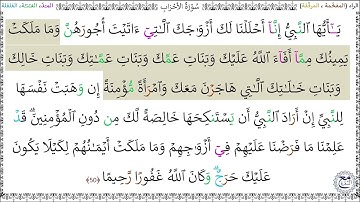 الراء (المفخمة، المرققة) سُورَةُ الأَحْزَابِ المد، الغنة، القلقلة
يَـٰٓأَيُّهَا ٱلنَّبِيُّ إِنَّآ أَحْلَلْنَا لَكَ أَزْوَٰجَكَ ٱلَّـٰتِيٓ ءَاتَيْتَ أُجُورَهُنَّ وَمَا مَلَكَتْ
يَمِينُكَ مِمَّآ أَفَآءَ ٱللَّهُ عَلَيْكَ وَبَنَاتِ عَمِّكَ وَبَنَاتِ عَمَّـٰتِكَ وَبَنَاتِ خَالِكَ
وَبَنَاتِ خَـٰلَـٰتِكَ ٱلَّـٰتِي هَاجَرْنَ مَعَكَ وَٱمْرَأَةً مُّؤْمِنَةً إِن وَهَبَتْ نَفْسَهَا
لِلنَّبِيِّ إِنْ أَرَادَ ٱلنَّبِيُّ أَن يَسْتَنكِحَهَا خَالِصَةً لَّكَ مِن دُونِ ٱلْمُؤْمِنِينَۗ قَدْ
عَلِمْنَا مَا فَرَضْنَا عَلَيْهِمْ فِيٓ أَزْوَٰجِهِمْ وَمَا مَلَكَتْ أَيْمَـٰنُهُمْ لِكَيْلَا يَكُونَ
عَلَيْكَ حَرَجٌۗ وَكَانَ ٱللَّهُ غَفُورًا رَّحِيمًا (٥٠)